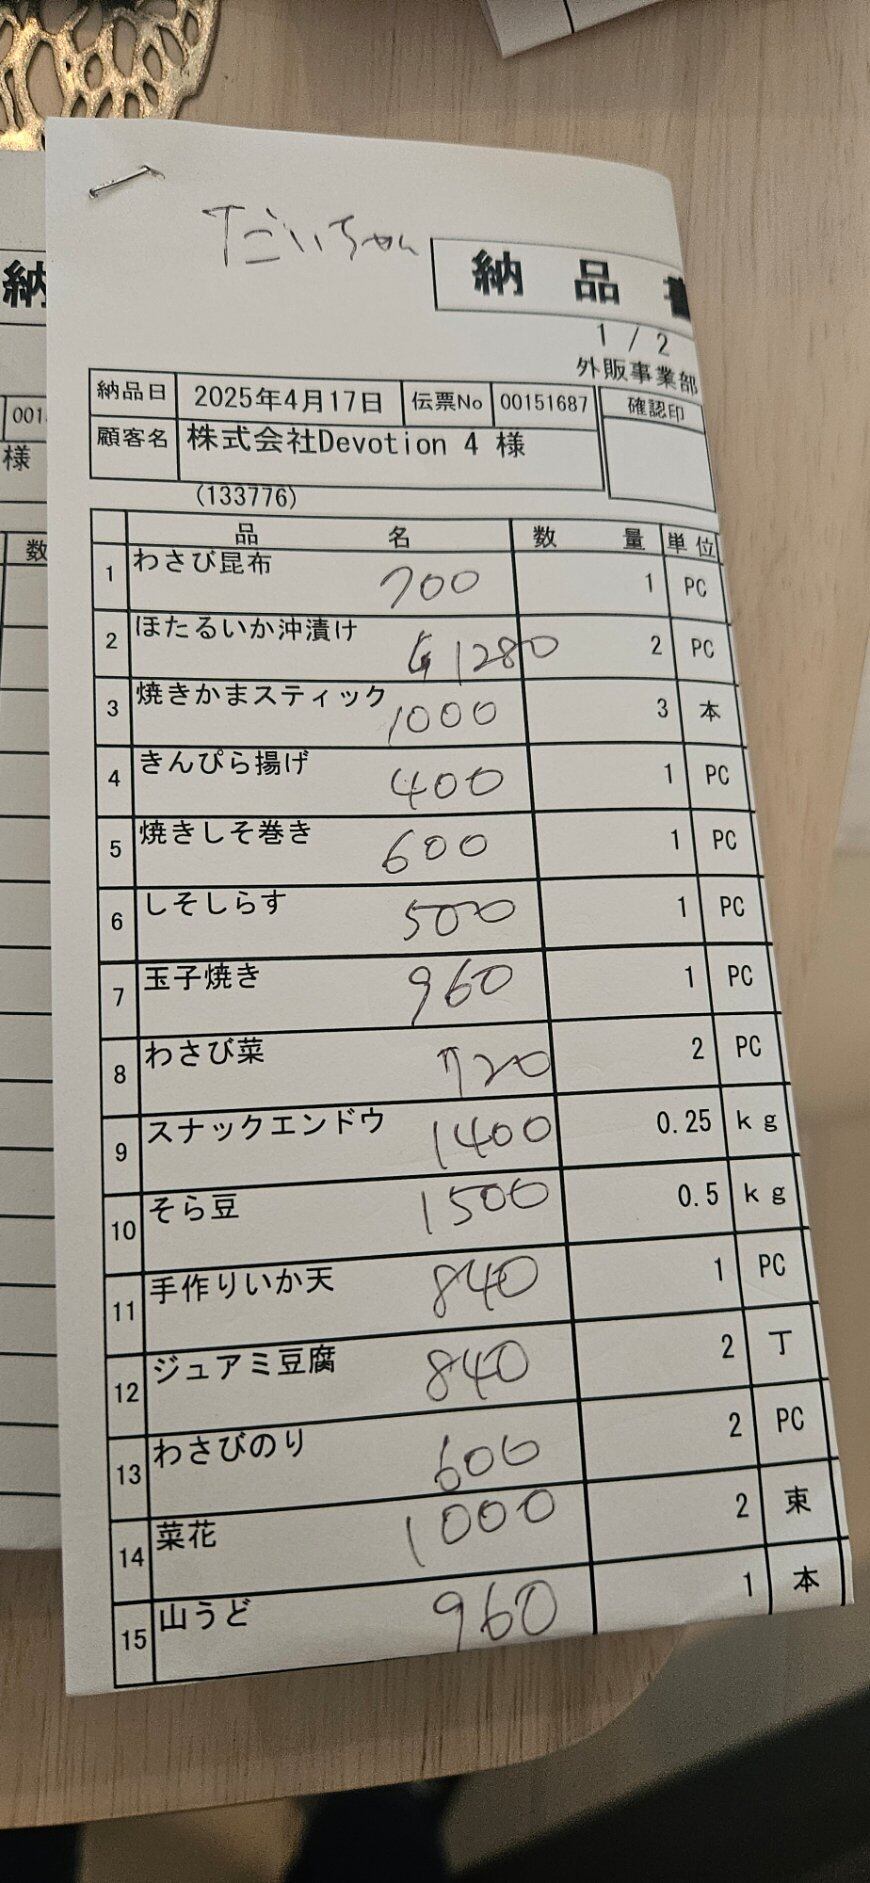 だいちゃん
納品書
1 / 2
外販事業部
納品日 2025年4月17日 伝票No 00151687 確認印
顧客名 株式会社Devotion 4 様
(133776)
品名 数量 単位
1 わさび昆布 700 1 PC
2 ほたるいか沖漬け 1280 2 PC
3 焼きかまスティック 1000 3 本
4 きんぴら揚げ 400 1 PC
5 焼きしそ巻き 600 1 PC
6 しそしらす 500 1 PC
7 玉子焼き 960 1 PC
8 わさび菜 720 2 PC
9 スナックエンドウ 1400 0.25 kg
10 そら豆 1500 0.5 kg
11 手作りいか天 840 1 PC
12 ジュアミ豆腐 840 2 丁
13 わさびのり 600 2 PC
14 菜花 1000 2 束
15 山うど 960 1 本
納
001
様
数